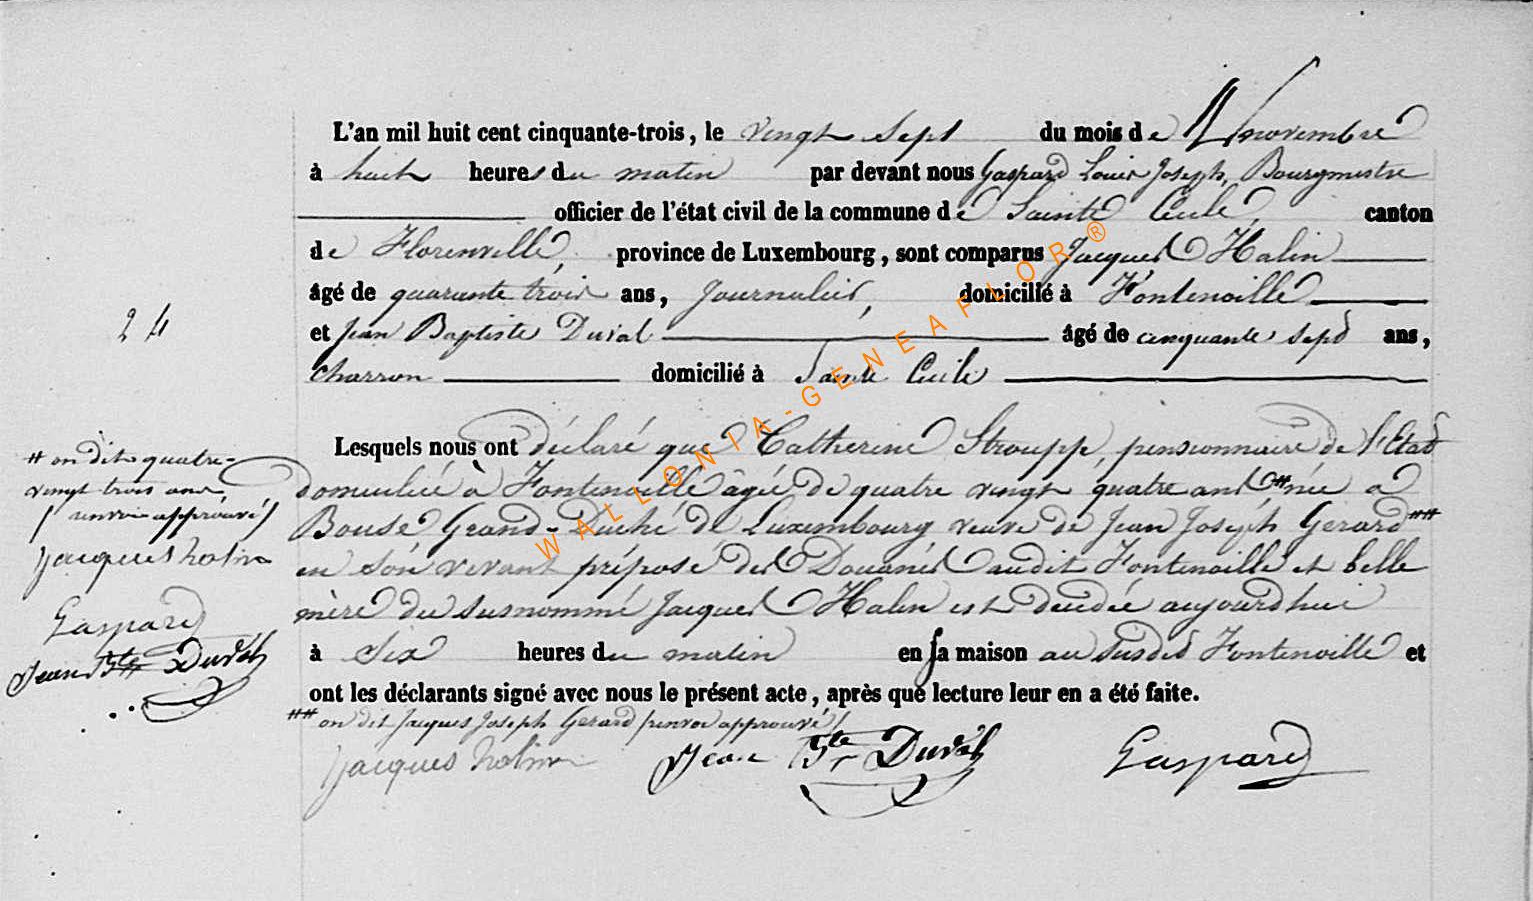 L'an mil huit cent cinquante-trois, le vingt sept du mois de novembre
à huit heures du matin par devant nous Gaspard Louis Joseph, Bourgmestre
officier de l'état civil de la commune de Sainte Cecile, canton
de Florenville, province de Luxembourg, sont comparus Jacques Halin
âgé de quarante trois ans, Journalier, domicilié à Fontenoille
et Jean Baptiste Duval âgé de cinquante sept ans,
charron domicilié à Sainte Cecile
24
Lesquels nous ont déclaré que Catherine Stroupp, pensionnaire de l'Etat
domiciliée à Fontenoille âgée de quatre vingt quatre ans # née a
Bouse Grand-Duché de Luxembourg veuve de Jean Joseph Gerard ##
en son vivant préposé des Douanes audit Fontenoille et belle
mère du susnommé Jacques Halin est décédée aujourdhui
à six heures du matin en sa maison au susdit Fontenoille et
ont les déclarants signé avec nous le présent acte, après que lecture leur en a été faite.
## on dit Jacques Joseph Gerard / renvoi approuvé /
Jacques halin Jean Bte Duval Gaspard
# on dit quatre-
vingt trois ans,
/ renvoi approuvé /
Jacques halin
Gaspard
Jean Bte Duval
WALLONIA-GENEAFLOR ®